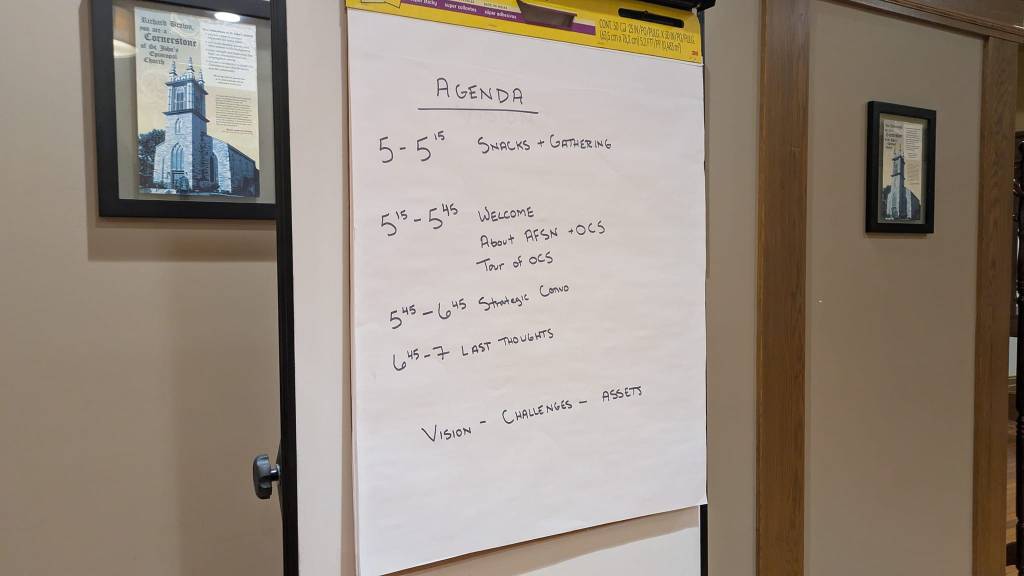 Richard Brown,
you are a
Cornerstone
of St. John's
Episcopal
Church
super sticky
super collantes
súper adhesivas
AGENDA
5 - 5 15 SNACKS + GATHERING
5 15 - 5 45 WELCOME
About AFSN + OCS
Tour of OCS
5 45 - 6 45 Strategic Convo
6 45 - 7 LAST THOUGHTS
VISION - CHALLENGES - ASSETS